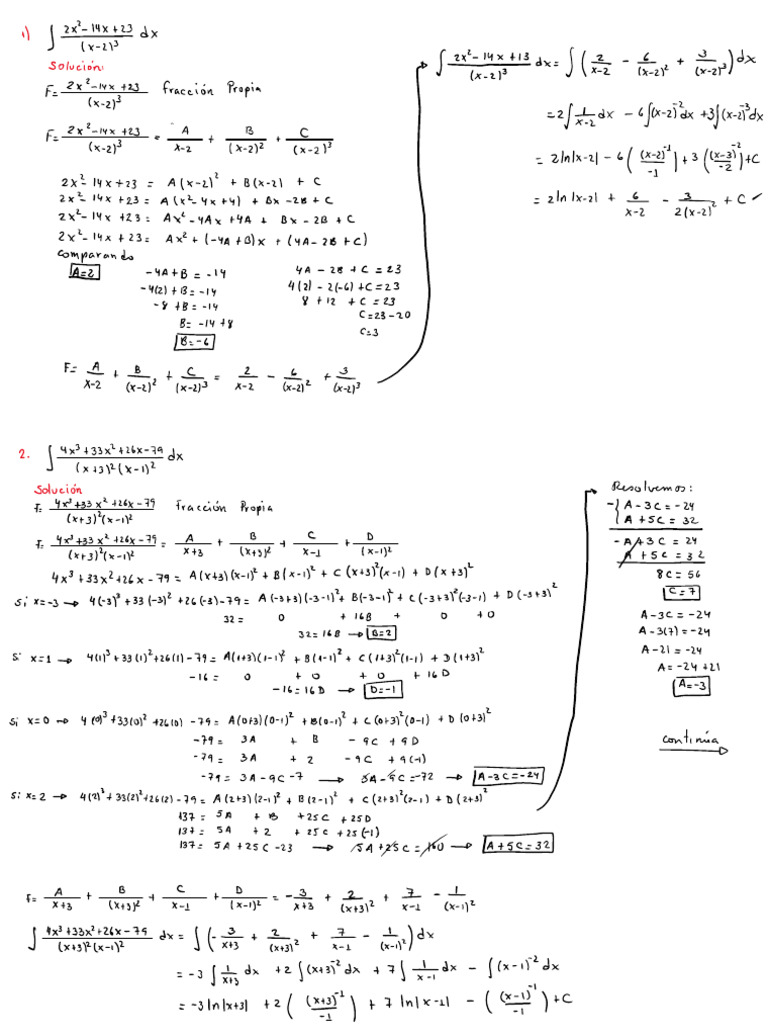 1) ∫ (2x²-14x+23)/(x-2)³ dx
Solución:
F= (2x²-14x+23)/(x-2)³ Fracción Propia
F= (2x²-14x+23)/(x-2)³ = A/(x-2) + B/(x-2)² + C/(x-2)³
2x²-14x+23 = A(x-2)² + B(x-2) + C
2x²-14x+23 = A(x²-4x+4) + Bx-2B + C
2x²-14x+23 = Ax²-4Ax+4A + Bx-2B+C
2x²-14x+23 = Ax² + (-4A+B)x + (4A-2B+C)
Comparando
A=2
-4A+B = -14
-4(2)+B = -14
-8+B = -14
B = -14+8
B = -6
4A-2B+C = 23
4(2)-2(-6)+C = 23
8+12+C = 23
C = 23-20
C = 3
F= A/(x-2) + B/(x-2)² + C/(x-2)³ = 2/(x-2) - 6/(x-2)² + 3/(x-2)³
∫ (2x²-14x+13)/(x-2)³ dx = ∫ (2/(x-2) - 6/(x-2)² + 3/(x-2)³) dx
= 2∫ 1/(x-2) dx - 6∫(x-2)⁻² dx + 3∫(x-2)⁻³ dx
= 2ln|x-2| - 6((x-2)⁻¹/-1) + 3((x-3)⁻²/-2) + C
= 2ln|x-2| + 6/(x-2) - 3/(2(x-2)²) + C ✓
2. ∫ (4x³+33x²+26x-79)/((x+3)²(x-1)²) dx
Solución
F= (4x³+33x²+26x-79)/((x+3)²(x-1)²) Fracción Propia
F= (4x³+33x²+26x-79)/((x+3)²(x-1)²) = A/(x+3) + B/(x+3)² + C/(x-1) + D/(x-1)²
4x³+33x²+26x-79 = A(x+3)(x-1)² + B(x-1)² + C(x+3)²(x-1) + D(x+3)²
Si x=-3 → 4(-3)³+33(-3)²+26(-3)-79 = A(-3+3)(-3-1)² + B(-3-1)² + C(-3+3)²(-3-1) + D(-3+3)²
32 = 0 + 16B + 0 + 0
32 = 16B → B=2
Si x=1 → 4(1)³+33(1)²+26(1)-79 = A(1+3)(1-1)² + B(1-1)² + C(1+3)²(1-1) + D(1+3)²
-16 = 0 + 0 + 0 + 16D
-16 = 16D → D=-1
Si x=0 → 4(0)³+33(0)²+26(0)-79 = A(0+3)(0-1)² + B(0-1)² + C(0+3)²(0-1) + D(0+3)²
-79 = 3A + B - 9C + 9D
-79 = 3A + 2 - 9C + 9(-1)
-79 = 3A-9C-7 → 3A-9C=-72 → A-3C=-24
Si x=2 → 4(2)³+33(2)²+26(2)-79 = A(2+3)(2-1)² + B(2-1)² + C(2+3)²(2-1) + D(2+3)²
137 = 5A + B + 25C + 25D
137 = 5A + 2 + 25C + 25(-1)
137 = 5A+25C-23 → 5A+25C=160 → A+5C=32
Resolvemos:
-{A-3C=-24
A+5C=32
-A+3C=24
A+5C=32
8C=56
C=7
A-3C=-24
A-3(7)=-24
A-21=-24
A=-24+21
A=-3
continúa
F= A/(x+3) + B/(x+3)² + C/(x-1) + D/(x-1)² = -3/(x+3) + 2/(x+3)² + 7/(x-1) - 1/(x-1)²
∫ (4x³+33x²+26x-79)/((x+3)²(x-1)²) dx = ∫ (-3/(x+3) + 2/(x+3)² + 7/(x-1) - 1/(x-1)²) dx
= -3∫ 1/(x+3) dx + 2∫(x+3)⁻² dx + 7∫ 1/(x-1) dx - ∫(x-1)⁻² dx
= -3ln|x+3| + 2((x+3)⁻¹/-1) + 7ln|x-1| - ((x-1)⁻¹/-1) + C